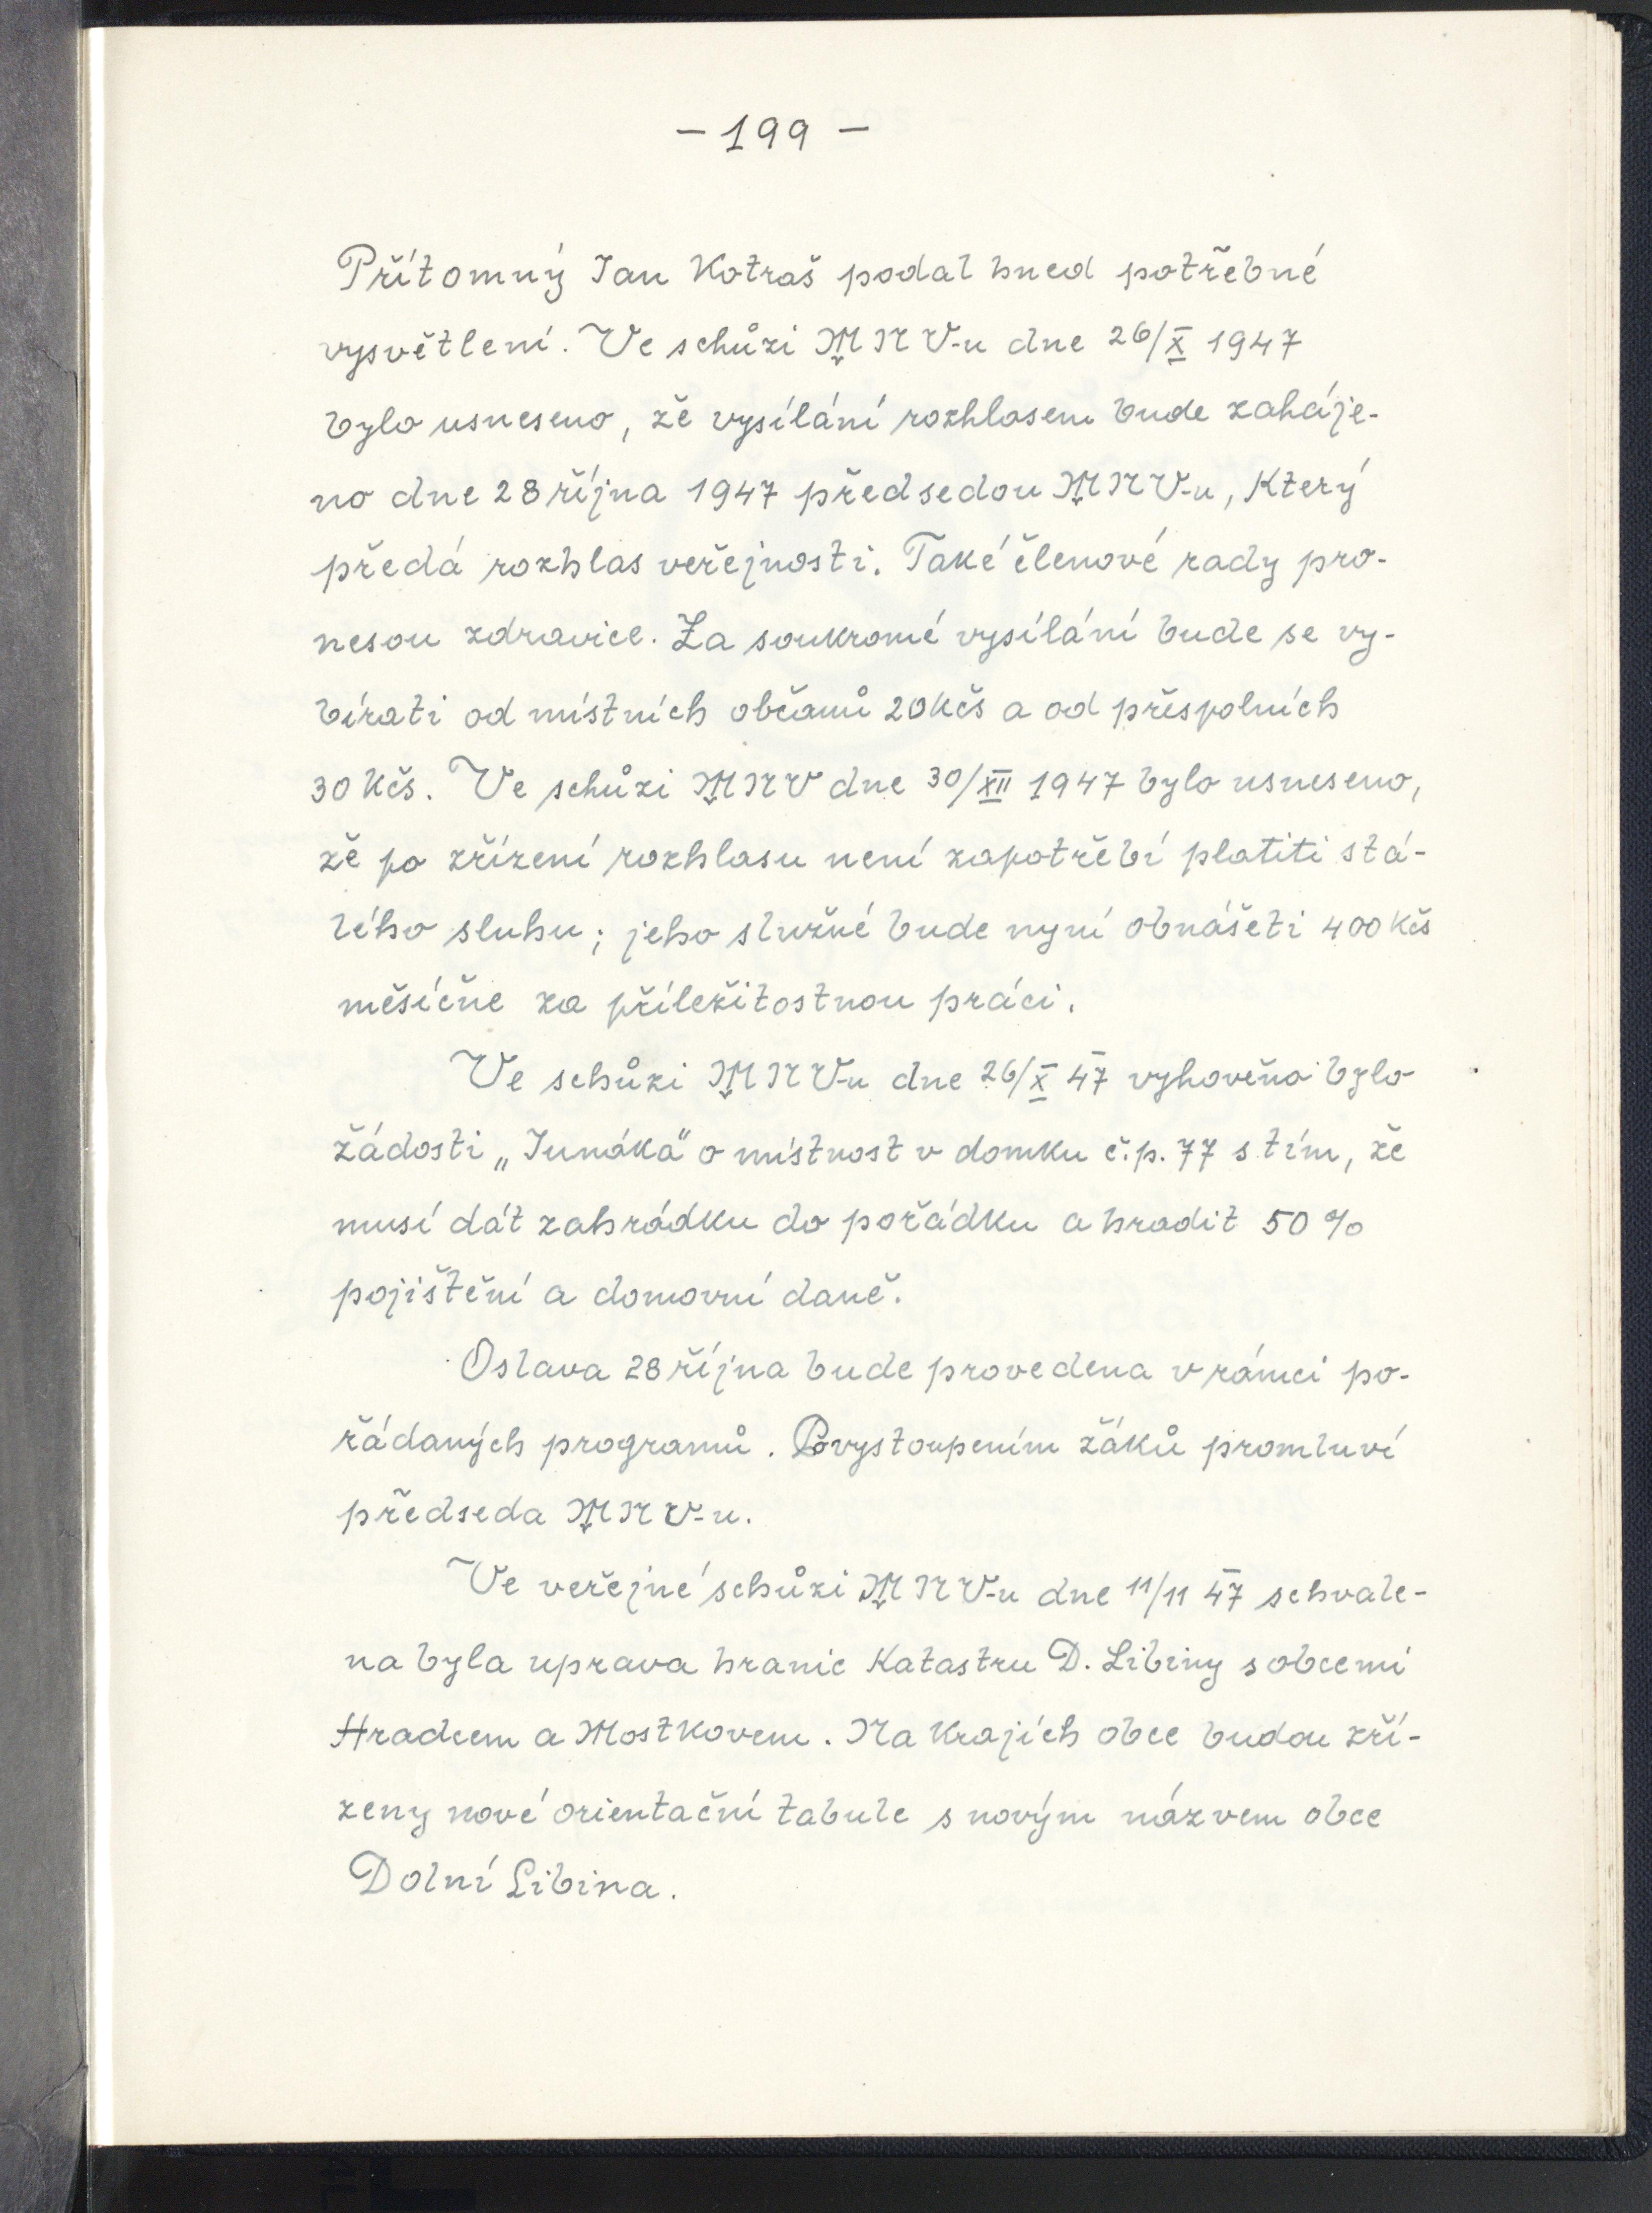 - 199 -
Přítomný Jan Kotraš podal hned potřebné
vysvětlení. Ve schůzi MNV-u dne 26/X 1947
bylo usneseno, že vysílání rozhlasem bude zaháje-
no dne 28 října 1947 předsedou MNV-u, který
předá rozhlas veřejnosti. Také členové rady pro-
nesou zdravice. Za soukromé vysílání bude se vy-
bírati od místních občanů 20 Kčs a od přespolních
30 Kčs. Ve schůzi MNV dne 30/XII 1947 bylo usneseno,
že po zřízení rozhlasu není zapotřebí platiti stá-
lého sluhu; jeho služné bude nyní obnášeti 400 Kčs
měsíčne za příležitostnou práci.
Ve schůzi MNV-u dne 26/X 47 vyhověno bylo
žádosti „Junáka" o místnost v domku č.p. 77 s tím, že
musí dát zahrádku do pořádku a hradit 50 %
pojištění a domovní daně.
Oslava 28 října bude provedena v rámci po-
řádaných programů. Po vystoupením žáků promluví
předseda MNV-u.
Ve veřejné schůzi MNV-u dne 11/11 47 schvále-
na byla uprava hranic Katastru D. Libiny s obcemi
Hradcem a Mostkovem. Na Krajích obce budou zří-
zeny nové orientační tabule s novým názvem obce
Dolní Libina.